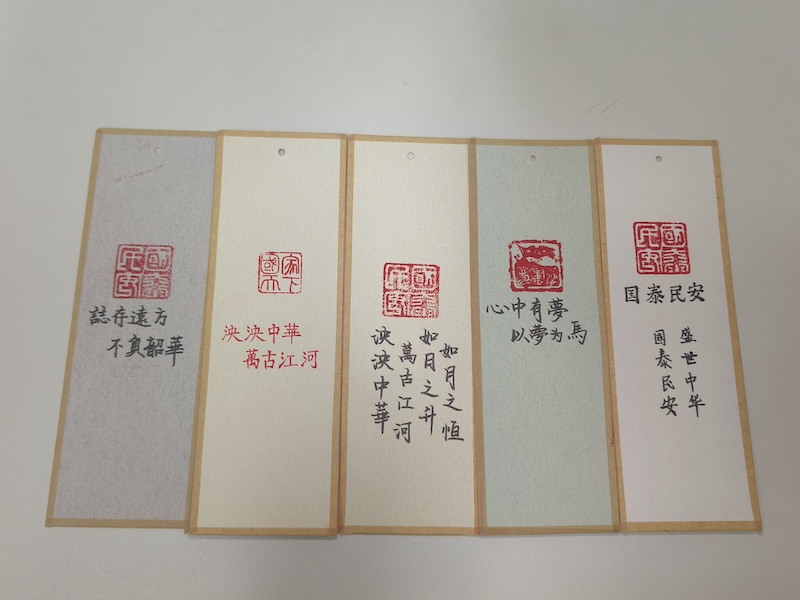 國泰民安
誌存遠方
不負韶華
家國天下
泱泱中華
萬古江河
國泰民安
如月之恒
如日之升
萬古江河
泱泱中華
心中有夢
以夢为馬
國泰民安
国泰民安
盛世中华
國泰民安